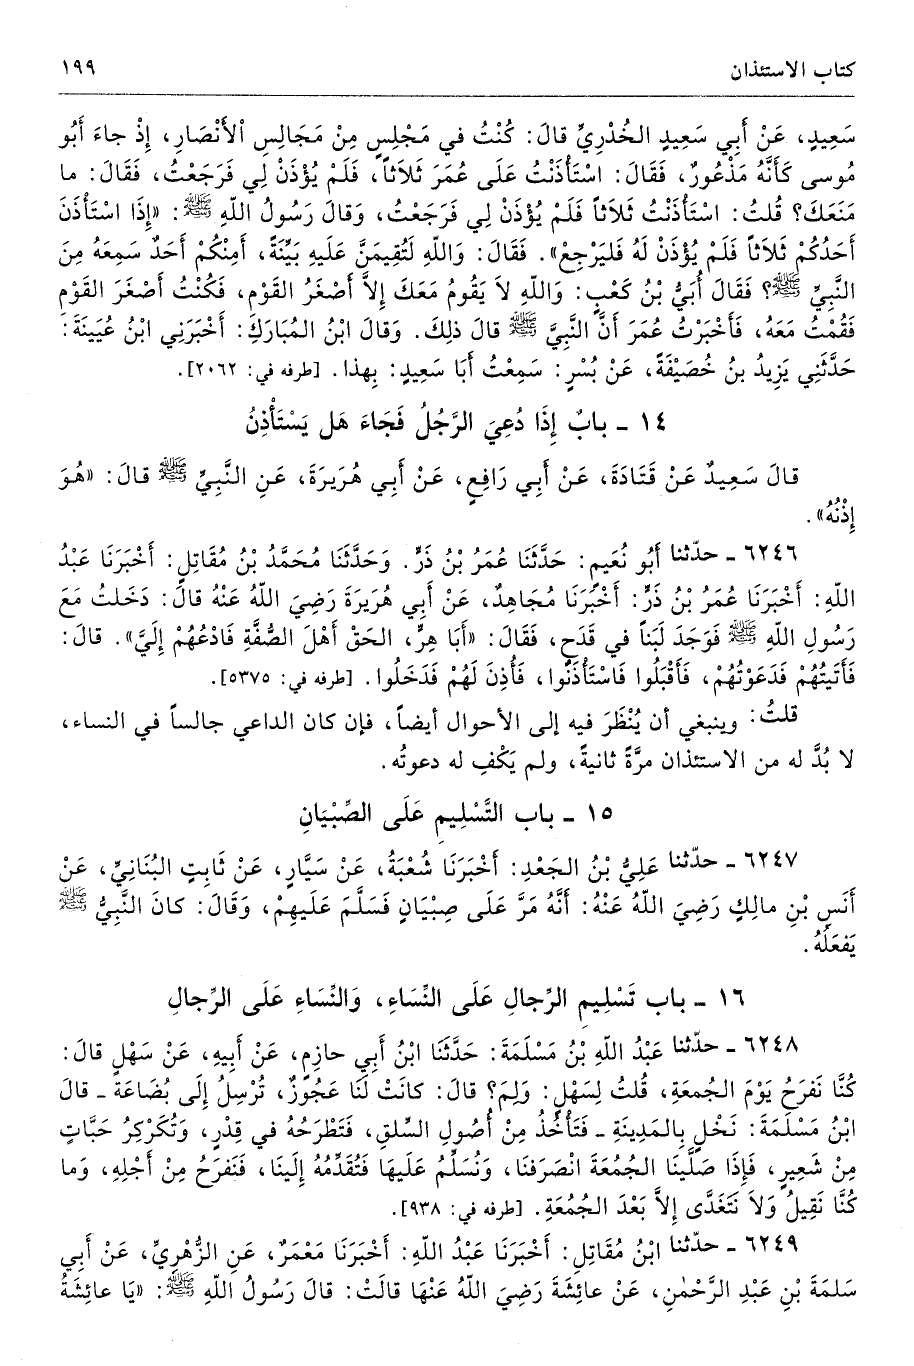 كتاب الاستئذان ١٩٩
سَعِيدٍ، عَنْ أَبِي سَعِيدٍ الخُدْرِيِّ قالَ: كُنْتُ في مَجْلِسٍ مِنْ مَجَالِسِ الأَنْصَارِ، إِذْ جاءَ أَبُو
مُوسى كَأَنَّهُ مَذْعُورٌ، فَقَالَ: اسْتَأْذَنْتُ عَلَى عُمَرَ ثَلاَثاً، فَلَمْ يُؤْذَنْ لِي فَرَجَعْتُ، فَقَالَ: ما
مَنَعَكَ؟ قُلتُ: اسْتَأْذَنْتُ ثَلاَثاً فَلَمْ يُؤْذَنْ لِي فَرَجَعْتُ، وَقالَ رَسُولُ اللّهِ ﷺ: «إِذَا اسْتَأْذَنَ
أَحَدُكُمْ ثَلاَثاً فَلَمْ يُؤْذَنْ لَهُ فَليَرْجِعْ». فَقَالَ: وَاللّهِ لَتُقِيمَنَّ عَلَيهِ بَيِّنَةً، أَمِنْكُمْ أَحَدٌ سَمِعَهُ مِنَ
النَّبِيِّ ﷺ؟ فَقَالَ أُبَيُّ بْنُ كَعْبٍ: وَاللّهِ لاَ يَقُومُ مَعَكَ إِلاَّ أَصْغَرُ القَوْمِ، فَكُنْتُ أَصْغَرَ القَوْمِ
فَقُمْتُ مَعَهُ، فَأَخْبَرْتُ عُمَرَ أَنَّ النَّبِيَّ ﷺ قالَ ذلِكَ. وَقالَ ابْنُ المُبَارَكِ: أَخْبَرَنِي ابْنُ عُيَينَةَ:
حَدَّثَنِي يَزِيدُ بنُ خُصَيْفَةَ، عَنْ بُسْرٍ: سَمِعْتُ أَبَا سَعِيدٍ: بِهذا. [طرفه في: ٢٠٦٢].
١٤ ـ بابٌ إِذَا دُعِيَ الرَّجُلُ فَجَاءَ هَل يَسْتَأْذِنُ
قالَ سَعِيدٌ عَنْ قَتَادَةَ، عَنْ أَبِي رَافِعٍ، عَنْ أَبِي هُرَيرَةَ، عَنِ النَّبِيِّ ﷺ قالَ: «هُوَ
إِذْنُهُ».
٦٢٤٦ ـ حدّثنا أَبُو نُعَيمٍ: حَدَّثَنَا عُمَرُ بْنُ ذَرٍّ. وَحَدَّثَنَا مُحَمَّدُ بْنُ مُقَاتِلٍ: أَخْبَرَنَا عَبْدُ
اللّهِ: أَخْبَرَنَا عُمَرُ بْنُ ذَرٍّ: أَخْبَرَنَا مُجَاهِدٌ، عَنْ أَبِي هُرَيرَةَ رَضِيَ اللّهُ عَنْهُ قالَ: دَخَلتُ مَعَ
رَسُولِ اللّهِ ﷺ فَوَجَدَ لَبَناً في قَدَحٍ، فَقَالَ: «أَبَا هِرٍّ، الحَقْ أَهْلَ الصُّفَّةِ فَادْعُهُمْ إِلَيَّ». قالَ:
فَأَتَيتُهُمْ فَدَعَوْتُهُمْ، فَأَقْبَلُوا فَاسْتَأْذَنُوا، فَأُذِنَ لَهُمْ فَدَخَلُوا. [طرفه في: ٥٣٧٥].
قلتُ: وينبغي أن يُنْظَرَ فيه إلى الأحوال أيضاً، فإن كان الداعي جالساً في النساء،
لا بُدَّ له من الاستئذان مرَّةً ثانيةً، ولم يَكْفِ له دعوتُه.
١٥ ـ باب التَّسْلِيمِ عَلَى الصِّبْيَانِ
٦٢٤٧ ـ حدّثنا عَلِيُّ بْنُ الجَعْدِ: أَخْبَرَنَا شُعْبَةُ، عَنْ سَيَّارٍ، عَنْ ثَابِتٍ البُنَانِيِّ، عَنْ
أَنَسِ بْنِ مالِكٍ رَضِيَ اللّهُ عَنْهُ: أَنَّهُ مَرَّ عَلَى صِبْيَانٍ فَسَلَّمَ عَلَيهِمْ، وَقَالَ: كانَ النَّبِيُّ ﷺ
يَفعَلُهُ.
١٦ ـ باب تَسْلِيمِ الرِّجالِ عَلَى النِّسَاءِ، وَالنِّسَاءِ عَلَى الرِّجالِ
٦٢٤٨ ـ حدّثنا عَبْدُ اللّهِ بْنُ مَسْلَمَةَ: حَدَّثَنَا ابْنُ أَبِي حازِمٍ، عَنْ أَبِيهِ، عَنْ سَهْلٍ قالَ:
كُنَّا نَفرَحُ يَوْمَ الجُمعَةِ، قُلتُ لِسَهْلٍ: وَلِمَ؟ قالَ: كانَتْ لَنَا عَجُوزٌ، تُرْسِلُ إِلَى بُضَاعَةَ ـ قالَ
ابْنُ مَسْلَمَةَ: نَخْلٍ بِالمَدِينَةِ ـ فَتَأْخُذُ مِنْ أُصُولِ السِّلقِ، فَتَطْرَحُهُ في قِدْرٍ، وَتُكَرْكِرُ حَبَّاتٍ
مِنْ شَعِيرٍ، فَإِذَا صَلَّينَا الجُمُعَةَ انْصَرَفنَا، وَنُسَلِّمُ عَلَيهَا فَتُقَدِّمُهُ إِلَينَا، فَنَفرَحُ مِنْ أَجْلِهِ، وَما
كُنَّا نَقِيلُ وَلاَ نَتَغَدَّى إِلاَّ بَعْدَ الجُمُعَةِ. [طرفه في: ٩٣٨].
٦٢٤٩ ـ حدّثنا ابْنُ مُقَاتِلٍ: أَخْبَرَنَا عَبْدُ اللّهِ: أَخْبَرَنَا مَعْمَرٌ، عَنِ الزُّهْرِيِّ، عَنْ أَبِي
سَلَمَةَ بْنِ عَبْدِ الرَّحْمٰنِ، عَنْ عائِشَةَ رَضِيَ اللّهُ عَنْهَا قالَتْ: قالَ رَسُولُ اللّهِ ﷺ: «يَا عائِشَةُ